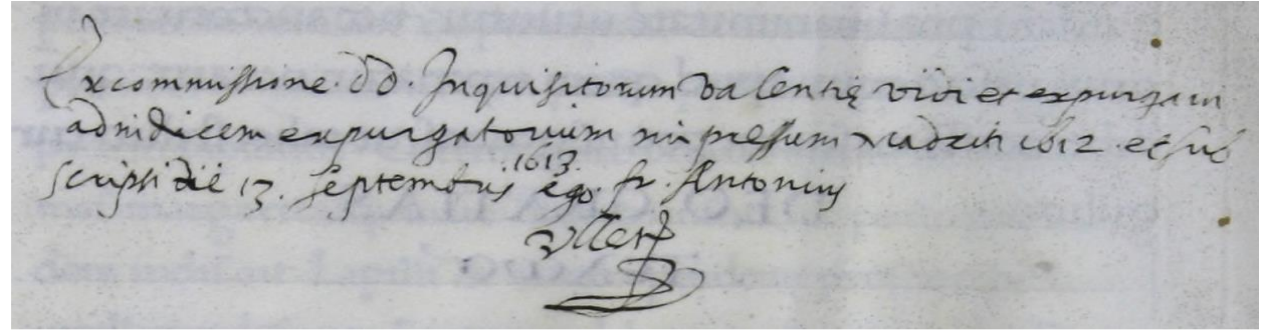 Ex commissione. dd. Inquisitorum Valentię vidi et expurgaui
ad indicem expurgatorium impressum Madriti 1612 et sub
scripsi die 13. septembris .1613. ego. fr. Antonius